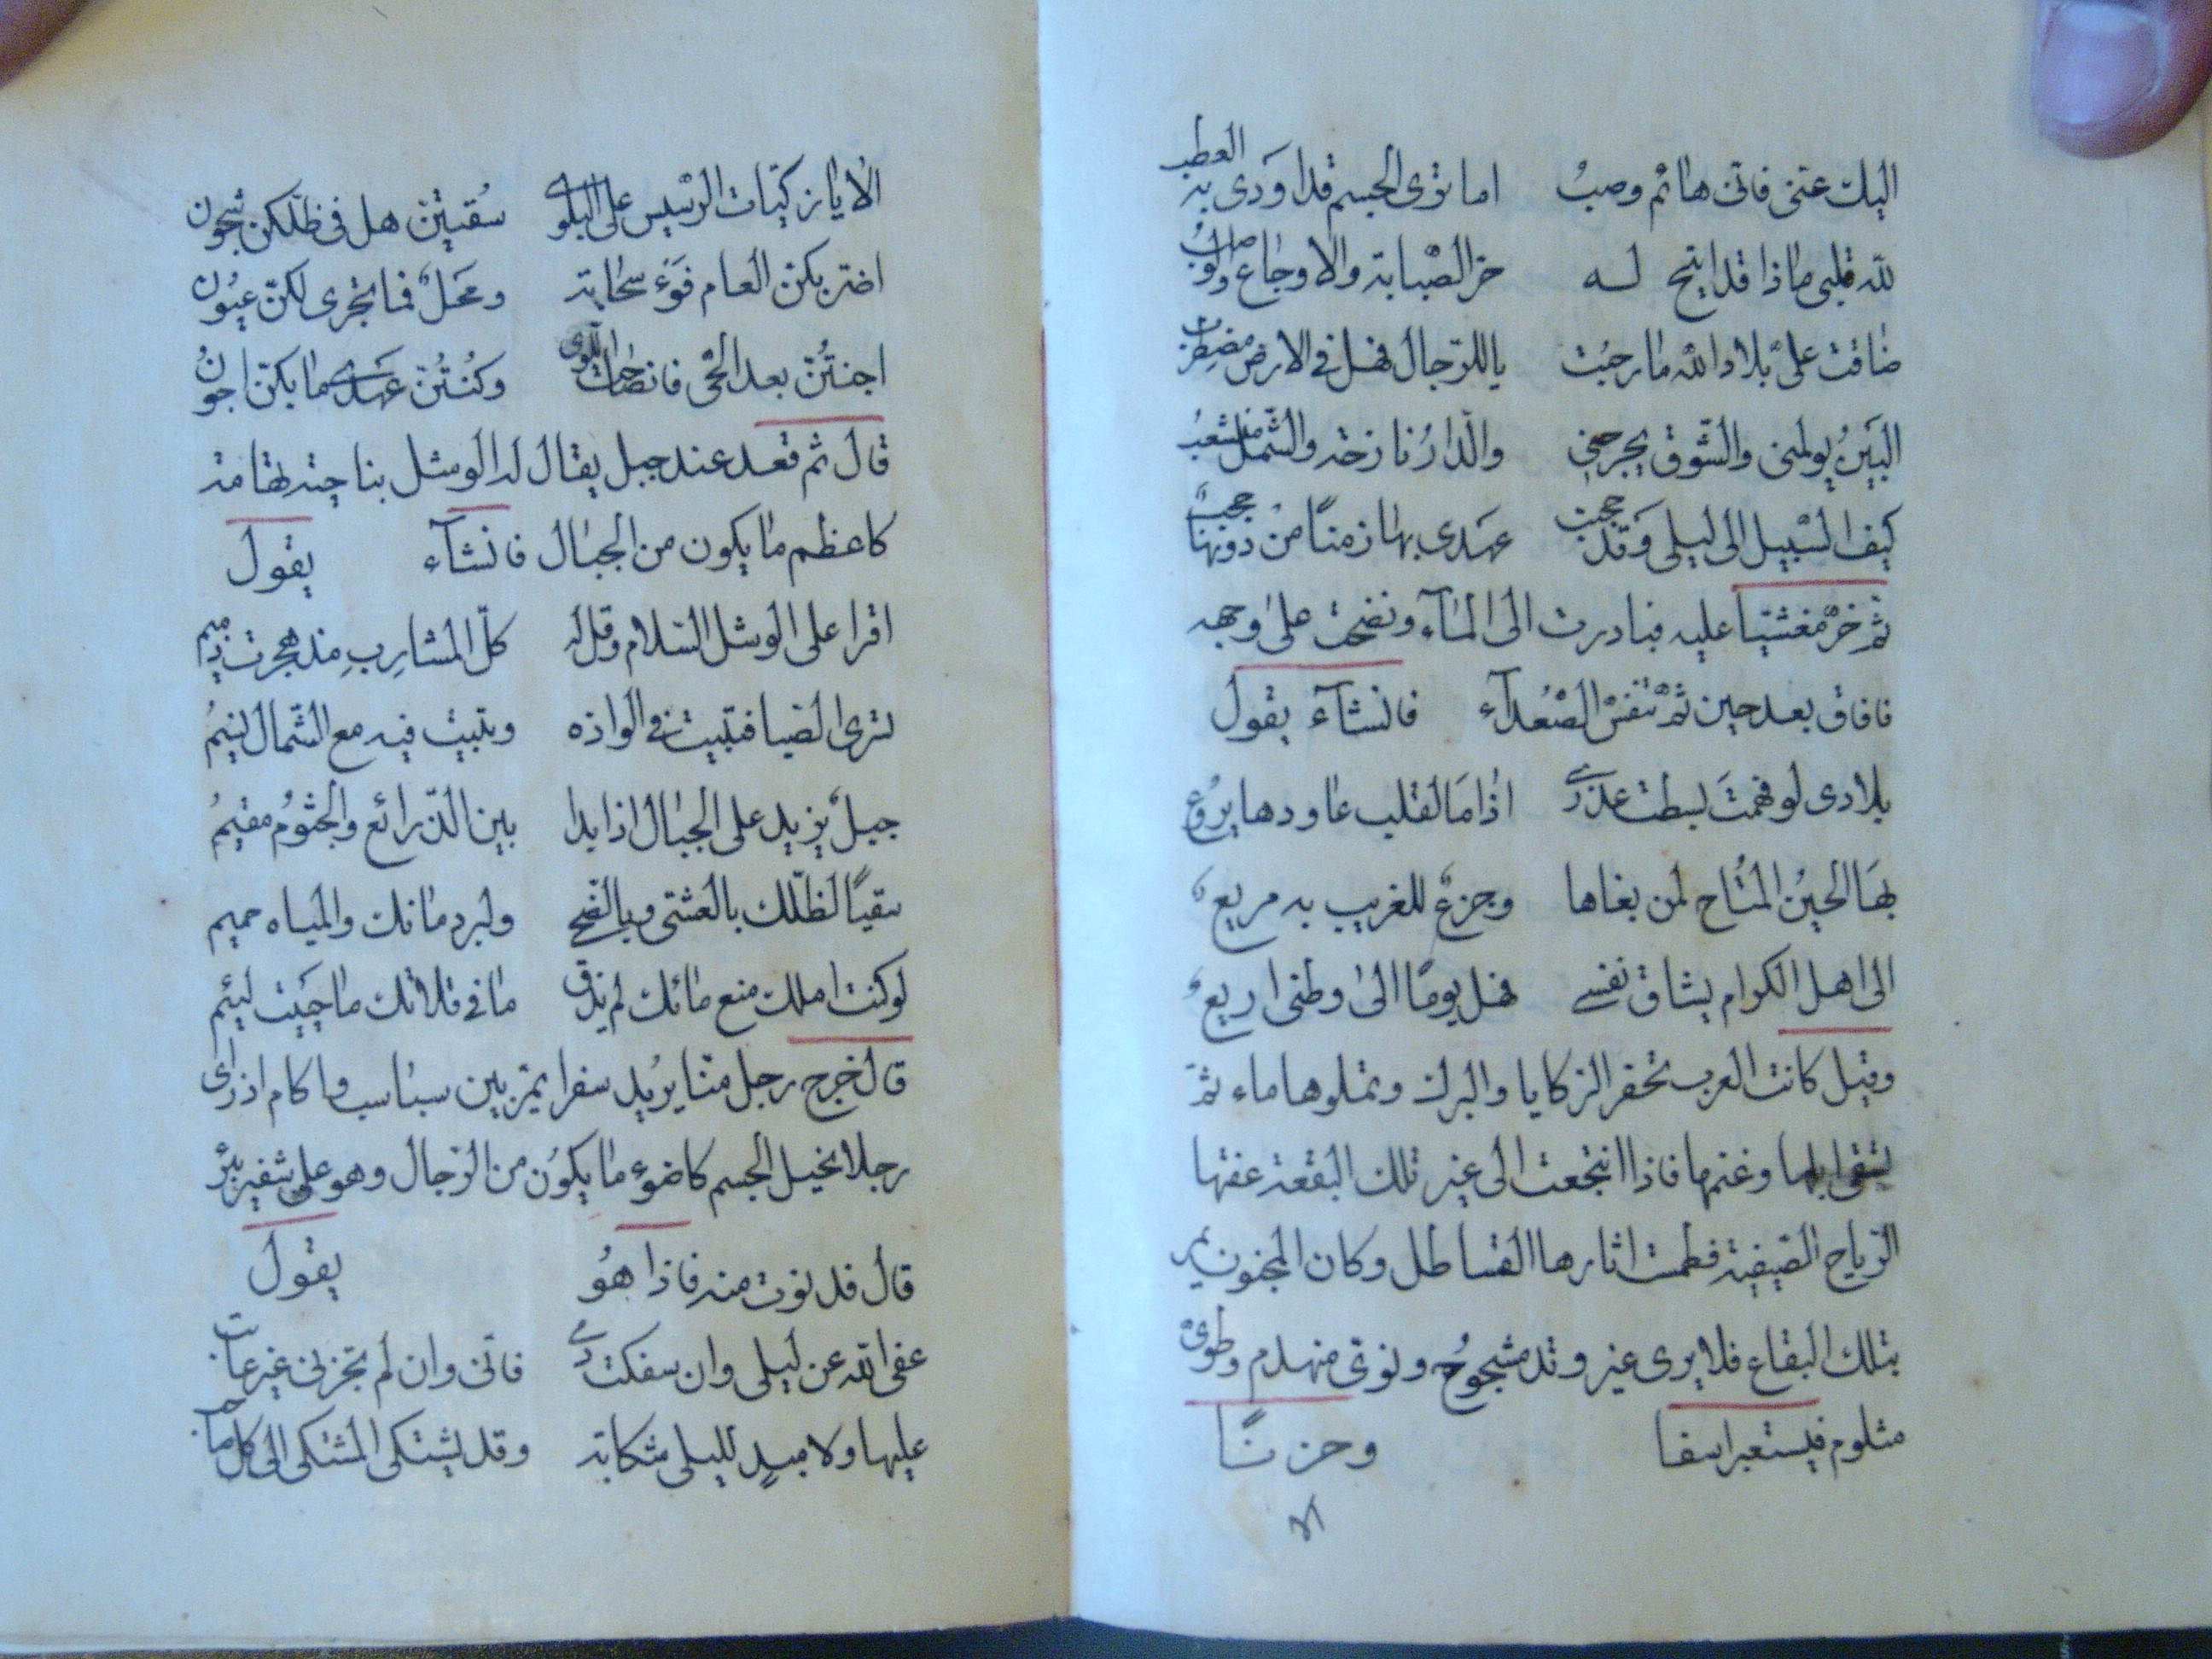 اليك عنى فانى هائم وصب اما ترى الجسم قد اودى به العطب
لله قلبى ماذا قد اتيح له حر الصبابة والاوجاع والوصب
ضاقت على بلاد الله ما رحبت يا للرجال فهل فى الارض مضطرب
البين يولمنى والشوق يجرحنى والدار نازحة والشمل منشعب
كيف السبيل الى ليلى وقد حجبت عهدى بها زمنا من دونها حجب
ثم خر مغشيا عليه فبادرت الى الماء ونضحت على وجهه
فافاق بعد حين ثم تنفس الصعداء فانشاء يقول
بلادى لو فهمت بسطت عذرى اذا ما القلب عاودها يروع
بها الحين المتاح لمن بغاها وجزع للغريب به مريع
الى اهل الكرام يشاق نفسى فهل يوما الى وطنى اريع
وقيل كانت العرب تحفر الركايا والبرك وتملوها ماء ثم
تسقى ابلها وغنمها فاذا انتجعت الى غير تلك البقعة عفتها
الرياح الصيفية فطمت اثارها القساطل وكان المجنون يمر
بتلك البقاع فلا يرى غير وتد مشجوج ونوى منهدم وطوى
مثلوم فيستعبر اسفا وحزنا
الا
الا يا ركيات الرسيس على البلى سقيتن هل فى ظلكن شجون
اضر بكن العام نوء سحابة ومحل فما تجرى لكن عيون
اجنتن بعد الحى فانصاحت اللوى وكنتن عهدى ما بكن اجون
قال ثم قعد عند جبل يقال له الوشل بناحية تهامة
كاعظم ما يكون من الجبال فانشاء يقول
اقرا على الوشل السلام وقل له كل المشارب مذ هجرت ذميم
لترى الضيا فتبيت فى الواذه وتبيت فيه مع الشمال نسيم
جبل يزيد على الجبال اذا بدا بين الذرائع والجثوم مقيم
سقيا لظلك بالعشى وبالضحى ولبرد مائك والمياه حميم
لو كنت املك منع مائك لم يذق ما فى قلاتك ما حييت لئيم
قال خرج رجل منا يريد سفرا يمر بين سباسب واكام اذ راى
رجلا نحيل الجسم كاضوء ما يكون من الرجال وهو على شفير بئر
قال فدنوت منه فاذا هو يقول
عفى الله عن ليلى وان سفكت دمى فانى وان لم تجزنى غير عاتب
عليها ولا مبد لليلى شكاية وقد يشتكى المشتكى الى كل صاحب